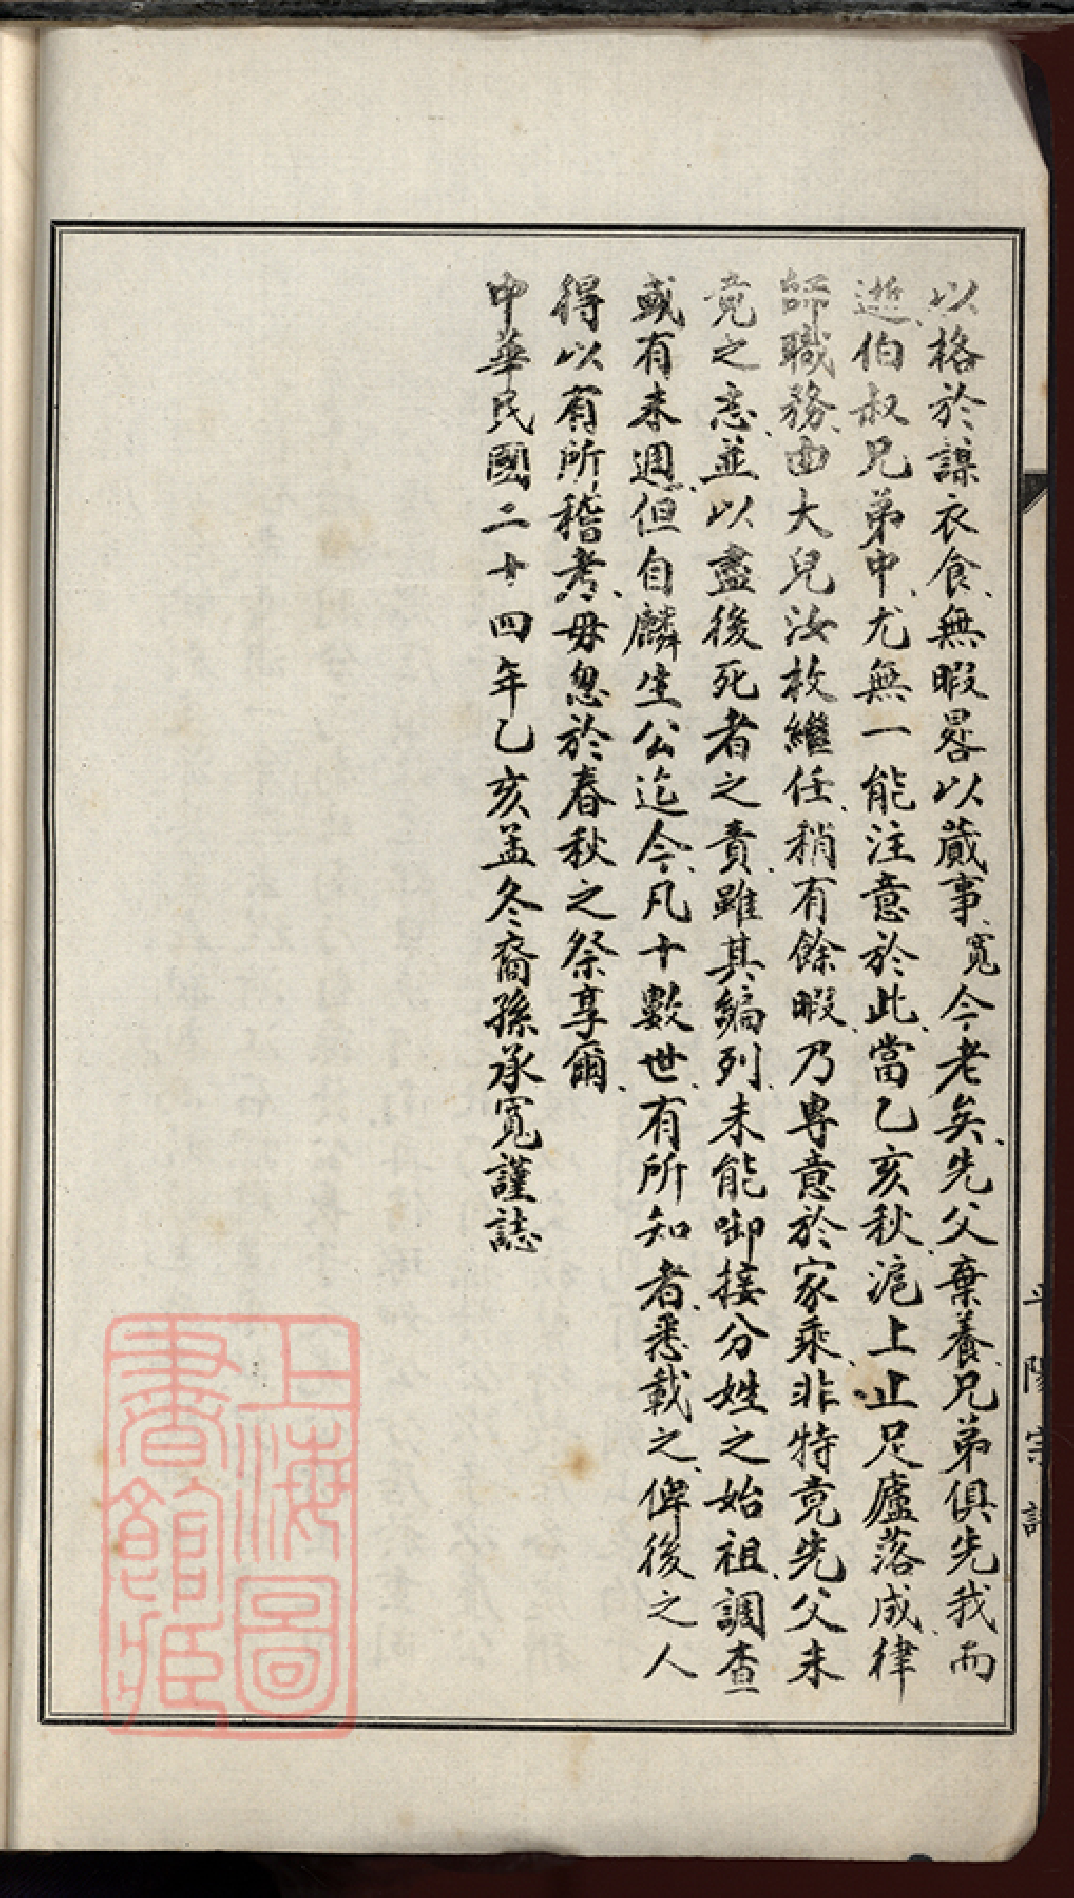 以格於謀衣食、無暇畧以蕆事、寬今老矣、先父棄養、兄弟俱先我而
逝、伯叔兄弟中、尤無一能注意於此、當乙亥秋、滬上止足廬落成、律
師職務、由大兒汝枚繼任、稍有餘暇、乃專意於家乘、非特竟先父未
竟之志、並以盡後死者之責、雖其編列、未能啣接分姓之始祖、調查
或有未週、但自麟生公迄今、凡十數世、有所知者、悉載之、俾後之人
得以有所稽考、毋忽於春秋之祭享爾、
中華民國二十四年乙亥孟冬裔孫承寬謹誌
陽宗譜
上海圖書館藏